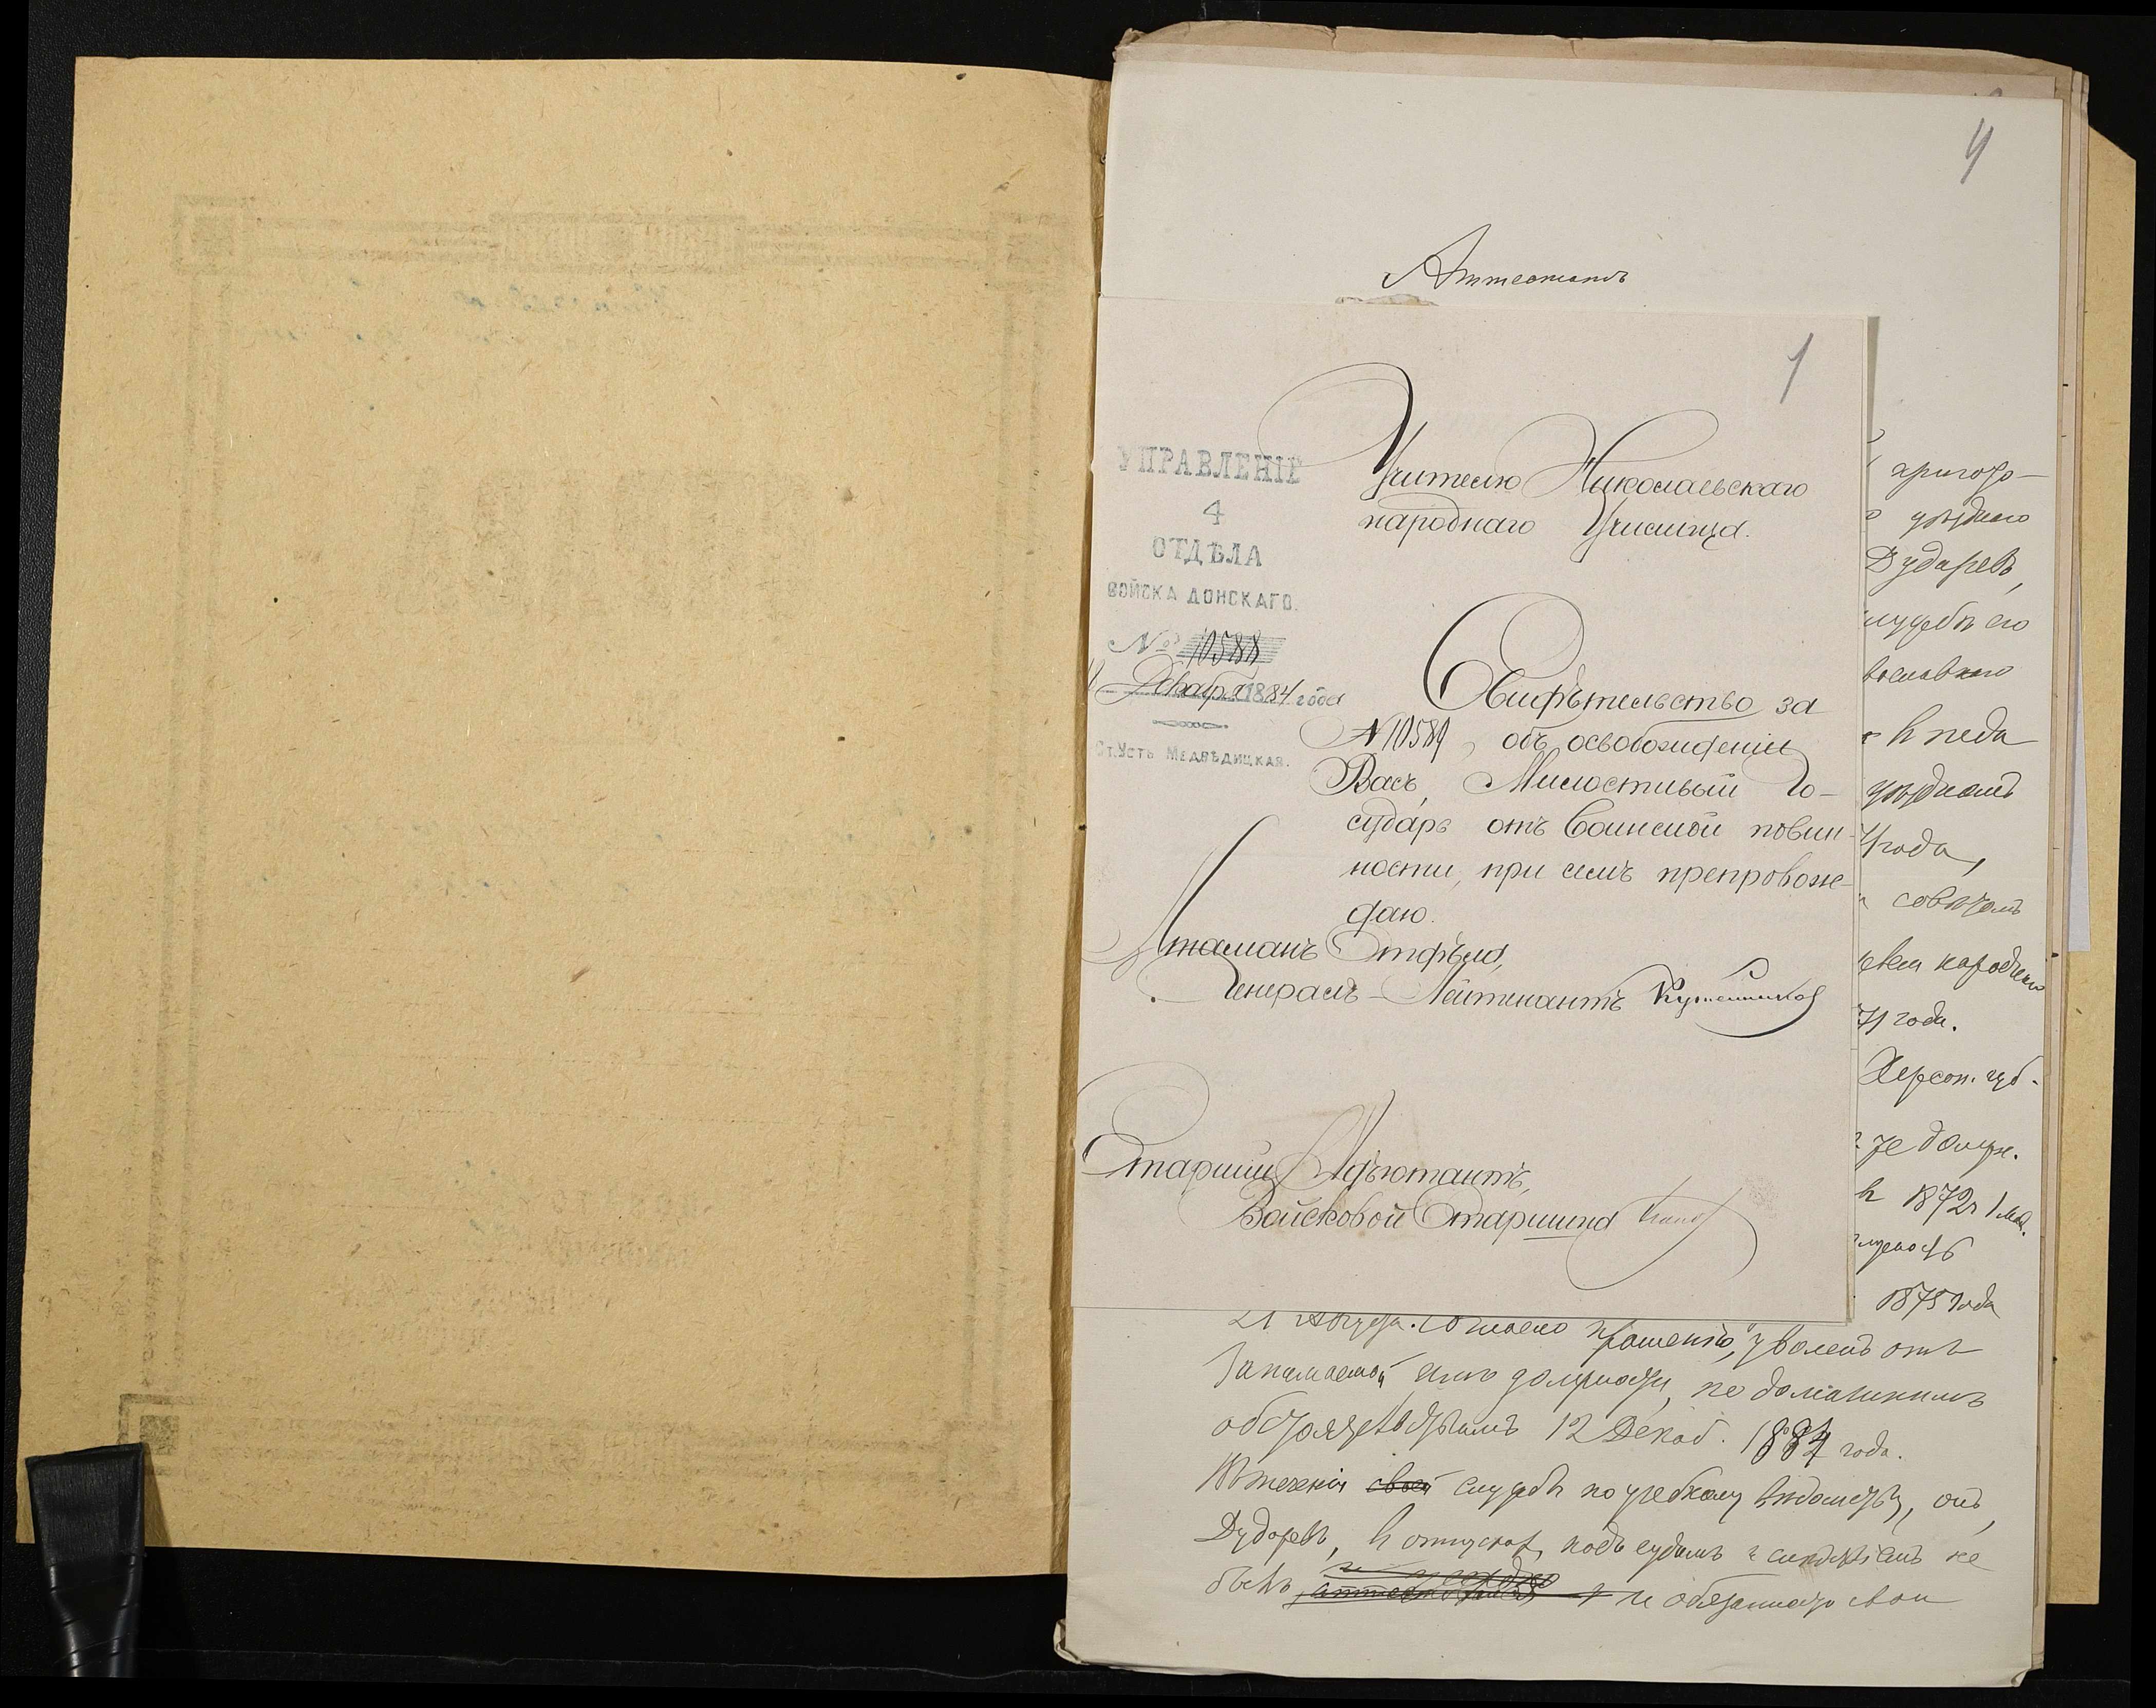 4
Аттестатъ
1
УПРАВЛЕНІЕ
4
ОТДѢЛА
ВОЙСКА ДОНСКАГО.
№ 10588
Декабря 1884 года
Ст. Усть Медвѣдицкая.
Учителю Николаевскаго
народнаго Училища.
Свидѣтельство за
N 10589, объ освобожденіи
Васъ, Милостивый Го-
сударь отъ воинской повин-
ности, при семъ препровож-
даю.
Атаманъ Отдѣла,
Генералъ-Лейтенантъ
Старшій Адъютантъ,
Войсковой Старшина
уѣзднаго
Дударевъ,
службѣ его
въ педа
уѣздномъ
71 года,
совѣтомъ
71 года.
Херсон. губ.
въ 1872 г. 1
1875 года
21 Августа. Согласно прошенію, уволенъ отъ
занимаемой имъ должности, по домашнимъ
обстоятельствамъ 12 Декаб. 1884 года.
Въ теченіи своей службы по учебному вѣдомству, онъ,
Дударевъ, въ отпускахъ, подъ судомъ и слѣдствіемъ не
былъ и обязанности свои